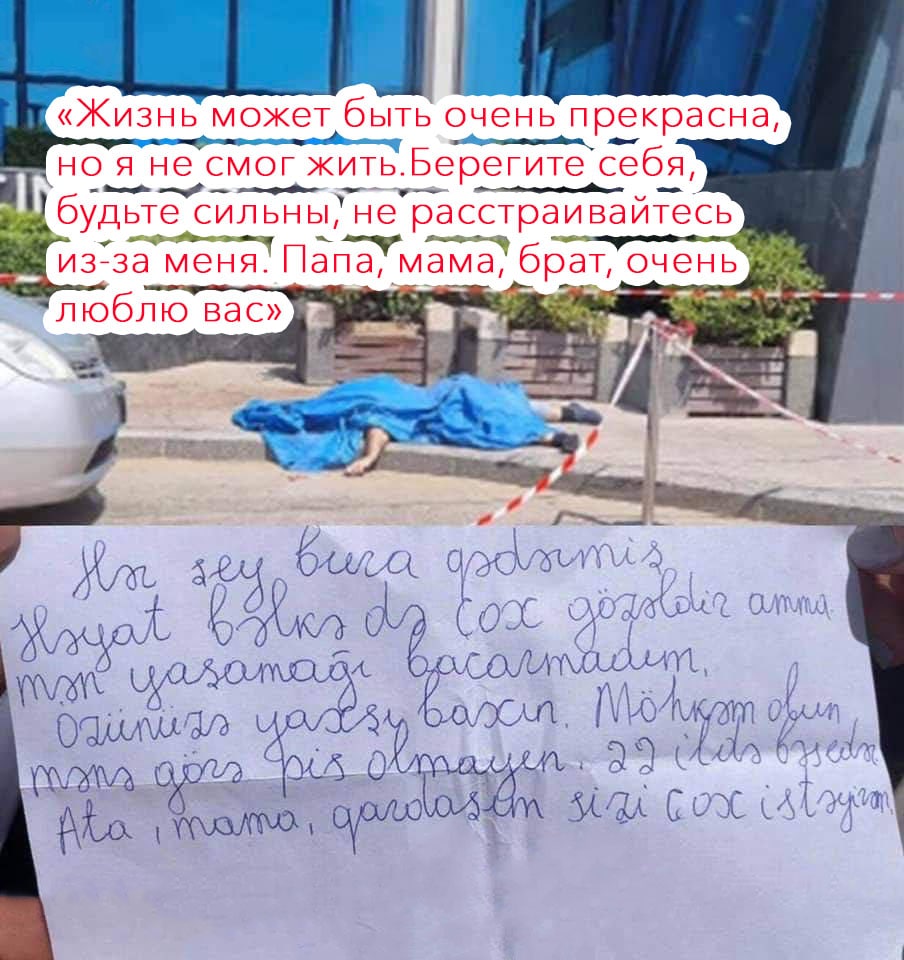 «Жизнь может быть очень прекрасна,
но я не смог жить.Берегите себя,
будьте сильны, не расстраивайтесь
из-за меня. Папа, мама, брат, очень
люблю вас»
Hər şey bura qədərmiş
Həyat bəlkə də çox gözəldir amma
mən yaşamağı bacarmadım.
Özünüzə yaxşı baxın. Möhkəm olun,
mənə görə pis olmayen. 22 ildə bəsedə
Ata, mama, qardaşem sizi çox istəyirəm,